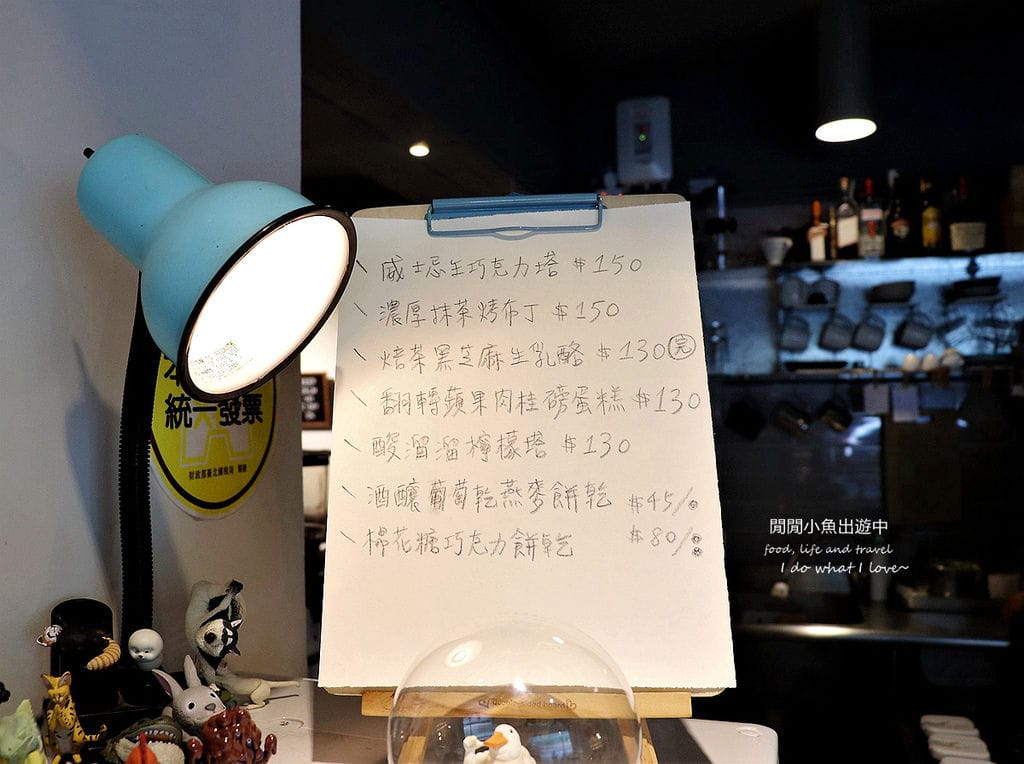 威士忌生巧克力塔 $150
濃厚抹茶烤布丁 $150
焙茶黑芝麻生乳酪 $130 完
翻轉蘋果肉桂磅蛋糕 $130
酸溜溜檸檬塔 $130
酒釀葡萄乾燕麥餅乾 $45/
棉花糖巧克力餅乾 $80/
統一發票
財政部臺北國稅局
閒閒小魚出遊中
food, life and travel
I do what I love~